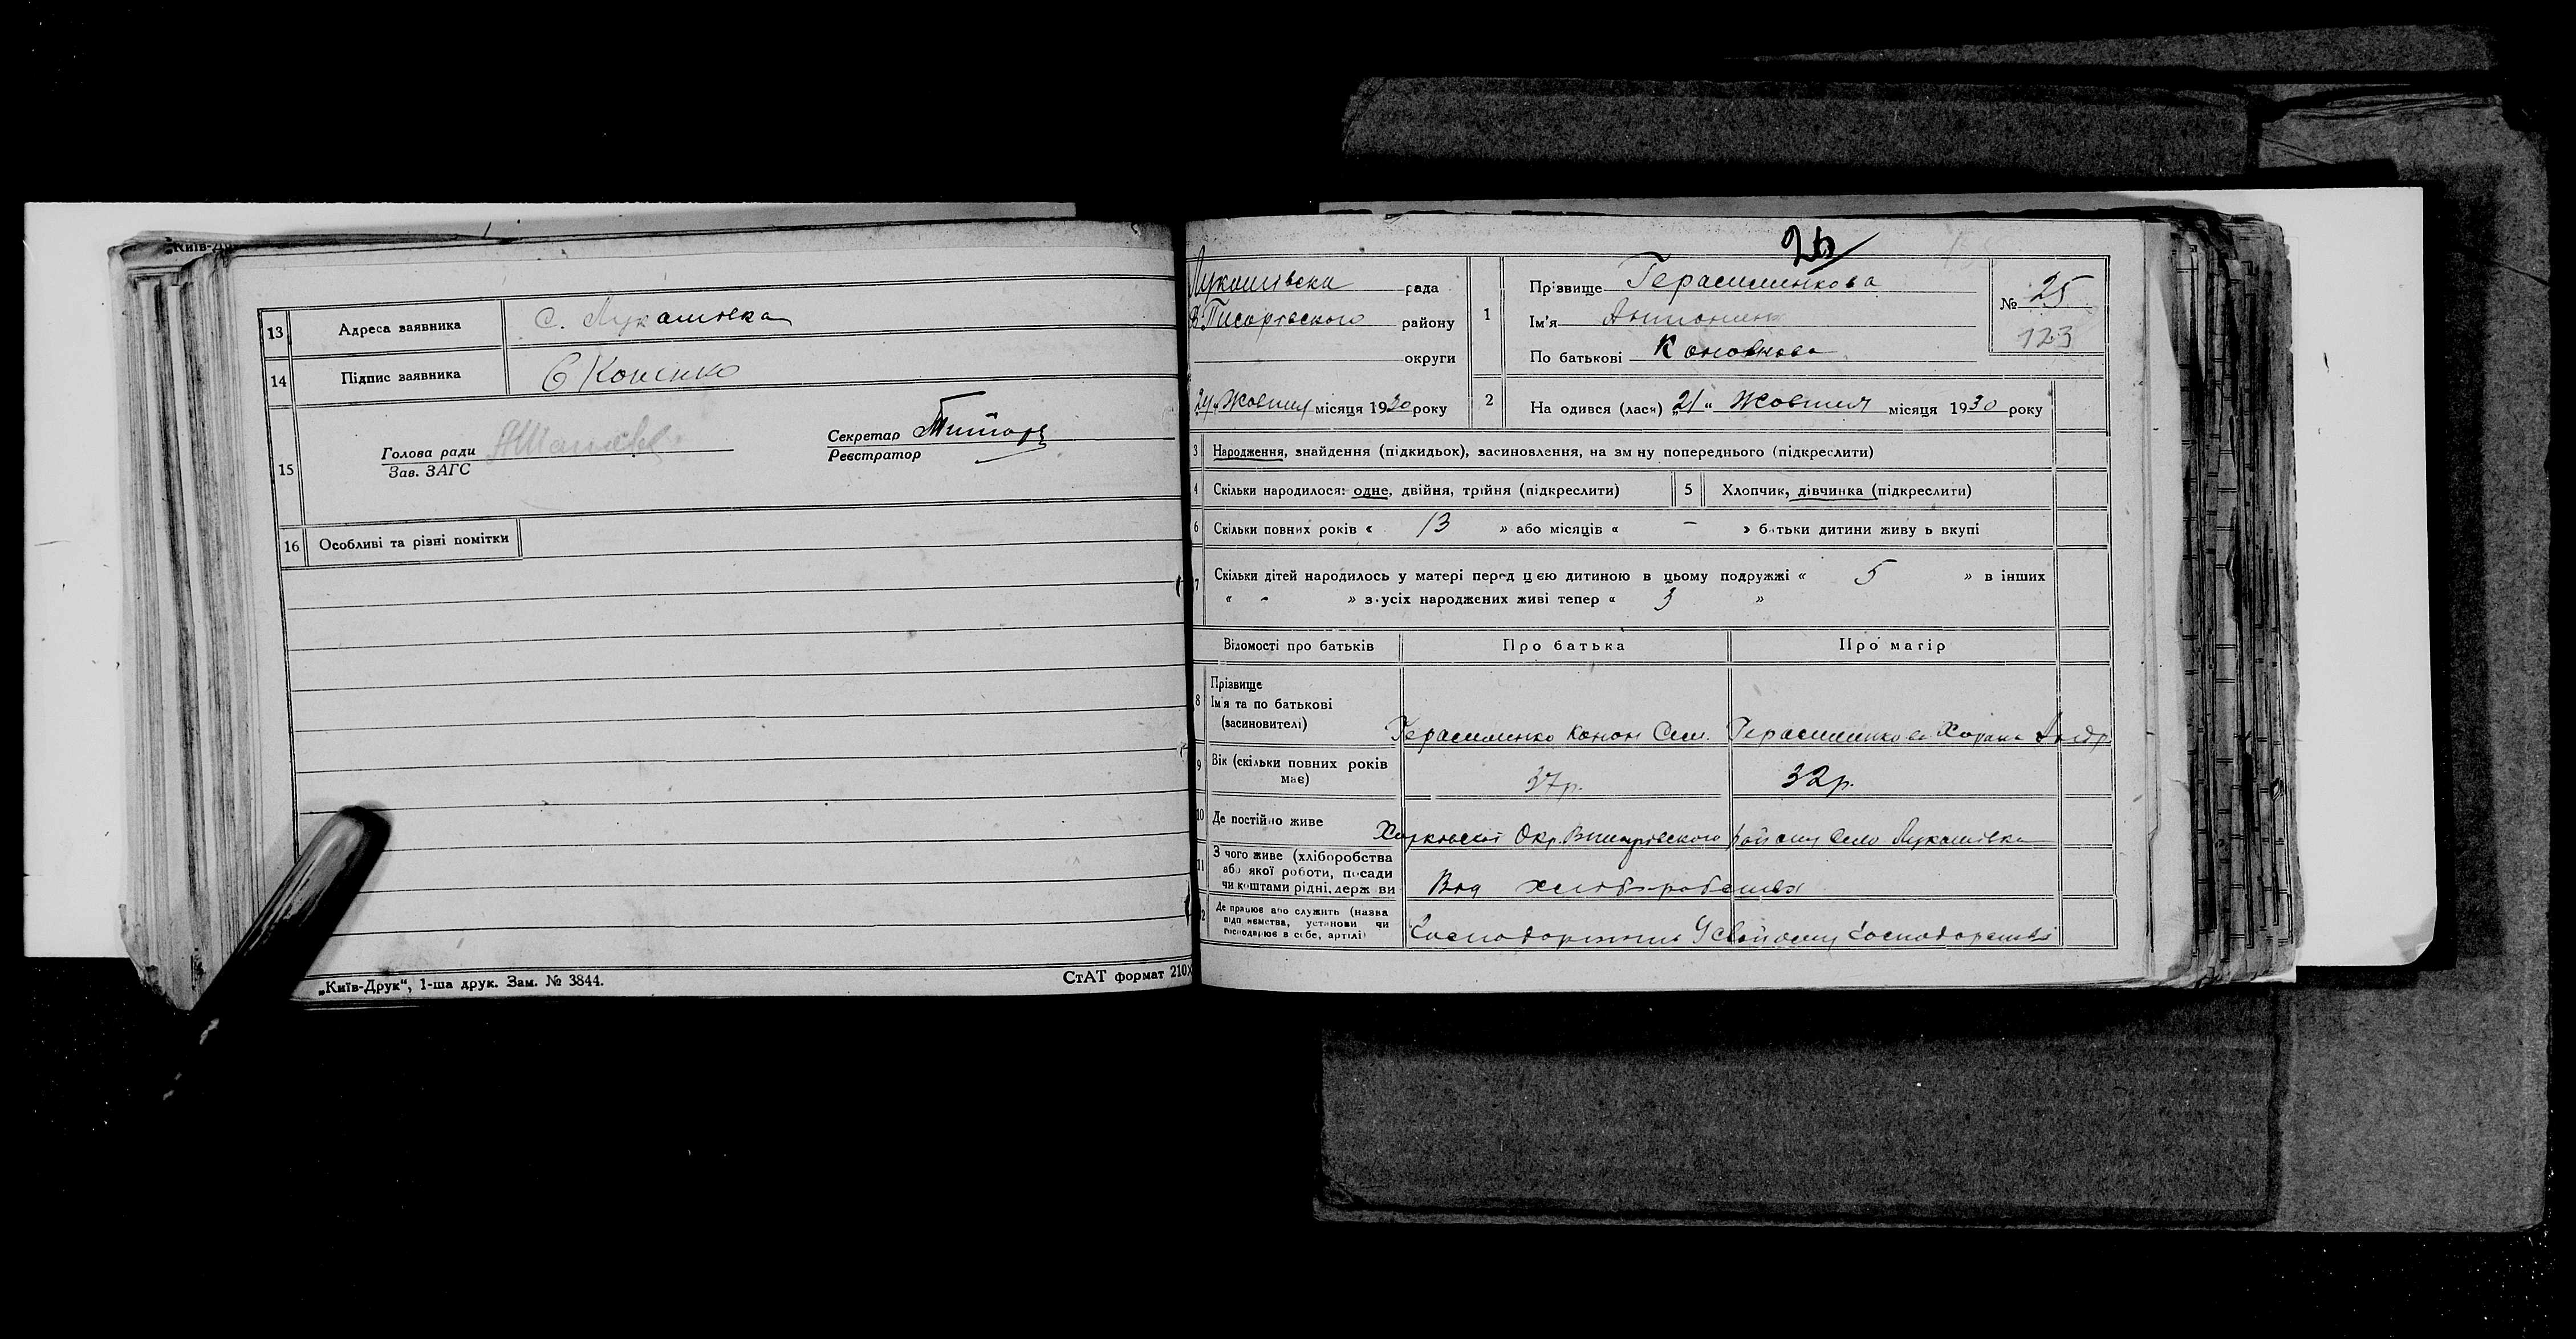 Київ-Д
13 Адреса заявника С. Лукашовка
14 Підпис заявника Є Коненко
15 Голова ради
Зав. ЗАГС
Секретар Титар
Реєстратор
16 Особливі та різні помітки
„Київ-Друк“, 1-ша друк. Зам. № 3844.
СтАТ формат 210×
26
Лукашівська рада
В.Писарівского району
округи
24 Жовтня місяця 1930 року
1 Прізвище Герасименкова
Ім'я Антонина
По батькові Кононова
№ 25
123
2 На одився (лася) „21“ Жовтня місяця 1930 року
3 Народження, знайдення (підкидьок), засиновлення, на зм ну попереднього (підкреслити)
4 Скільки народилося: одне, двійня, трійня (підкреслити)
5 Хлопчик, дівчинка (підкреслити)
6 Скільки повних років « 13 » або місяців « – » батьки дитини живу ь вкупі
7 Скільки дітей народилось у матері перед цією дитиною в цьому подружжі « 5 » в інших
« - » з усіх народжених живі тепер « 3 »
Відомості про батьків Про батька Про матір
8 Прізвище
Ім'я та по батькові
(засиновителі)
Герасименко Конон Сем. Герасименкова Хорина Андр
9 Вік (скільки повних років має) 37р. 32р.
10 Де постійно живе Харківської Окр. Вписарівського району Село Лукашівка
11 З чого живе (хліборобства
або якої роботи, посади
чи коштами рідні, держ ви
Від хліборобства
12 Де працює або служить (назва
підп иємства, установи чи
господарює в себе, артілі)
Господорють У свойому господорстві